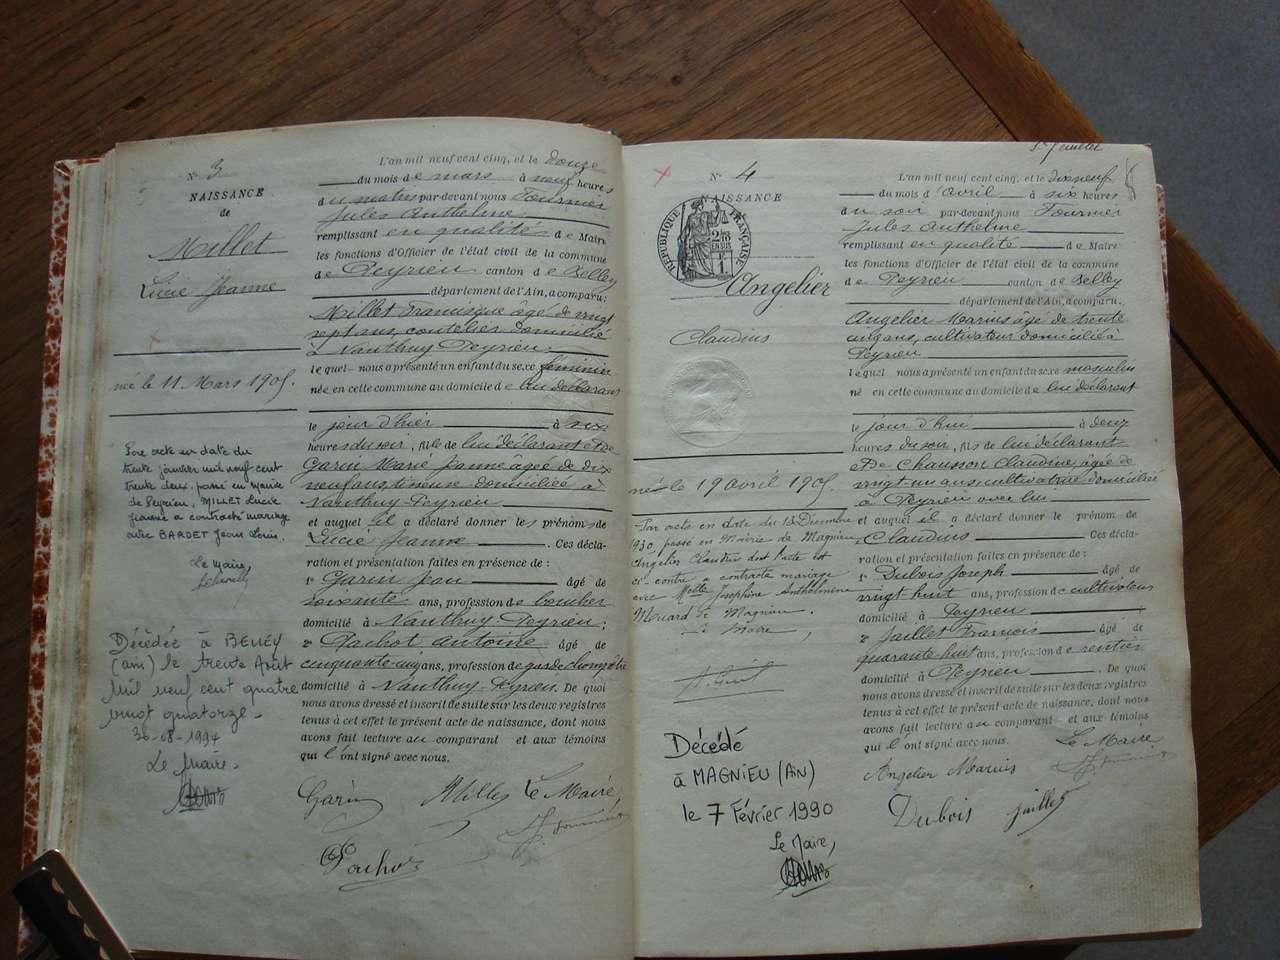 N° 3
NAISSANCE
de
Millet
Lucie Jeanne
née le 11 Mars 1905
Par acte en date du
trente janvier mil neuf cent
trente deux, passé en mairie
de Peyrieu, MILLET Lucie
Jeanne a contracté mariage
avec BARDET Jean Louis.
Le Maire,
Décédée à BELLEY
(ain) le trente Août
Mil neuf cent quatre
vingt quatorze -
30-08-1994
Le Maire -
L'an mil neuf cent cinq, et le douze
du mois de mars à neuf heures
du matin par-devant nous Fournier
Jules Anthelme
remplissant en qualité de Maire
les fonctions d'Officier de l'état civil de la commune
de Peyrieu canton de Belley
département de l'Ain, a comparu:
Millet Francisque âgé de vingt
sept ans, coutelier domicilié
à Nanthuy Peyrieu
lequel nous a présenté un enfant du sexe féminin
née en cette commune au domicile de lui déclarant
le jour d'hier à six
heures du soir, fille de lui déclarant et de
Garin Marie Jeanne âgée de dix
neuf ans, tisseuse domiciliée à
Nanthuy Peyrieu
et auquel il a déclaré donner les prénoms de
Lucie Jeanne Ces décla-
ration et présentation faites en présence de :
1° Garin Jean âgé de
soixante ans, profession de boucher
domicilié à Nanthuy Peyrieu;
2° Pachot Antoine âgé de
cinquante cinq ans, profession de garde champêtre
domicilié à Nanthuy-Peyrieu. De quoi
nous avons dressé et inscrit de suite sur les deux registres
tenus à cet effet le présent acte de naissance, dont nous
avons fait lecture au comparant et aux témoins
qui l'ont signé avec nous.
Garin Millet Le Maire,
J. Fournier
Pachot
5e feuillet
N° 4
NAISSANCE
RÉPUBLIQUE FRANÇAISE
Angelier
Claudius
né le 19 avril 1905
Par acte en date du 13 Décembre
1930, passé en Mairie de Magnieu,
Angelier Claudius dont l'acte est
ci-contre a contracté mariage
avec Melle Josephine Anthelmine
Mouard de Magnieu.
Le Maire,
Décédé
à MAGNIEU (AIN)
le 7 Février 1990
Le Maire,
L'an mil neuf cent cinq, et le dix neuf
du mois d'avril à six heures
du soir par-devant nous Fournier
Jules Anthelme
remplissant en qualité de Maire
les fonctions d'Officier de l'état civil de la commune
de Peyrieu canton de Belley
département de l'Ain, a comparu.
Angelier Marius âgé de trente
cinq ans, cultivateur domicilié à
Peyrieu
lequel nous a présenté un enfant du sexe masculin
né en cette commune au domicile de lui déclarant
le jour d'hui à deux
heures du soir, fils de lui déclarant
et de Chausson Claudine, âgée de
vingt un ans cultivatrice domiciliée
à Peyrieu avec lui
et auquel il a déclaré donner le prénom de
Claudius Ces décla-
ration et présentation faites en présence de :
1° Dubois Joseph âgé de
vingt huit ans, profession de cultivateur
domicilié à Peyrieu
2° Jaillet François âgé de
quarante-huit ans, profession de rentier
domicilié à Peyrieu De quoi
nous avons dressé et inscrit de suite sur les deux registres
tenus à cet effet le présent acte de naissance, dont nous
avons fait lecture au comparant et aux témoins
qui l'ont signé avec nous. Le Maire
Angelier Marius J. Fournier
Dubois Jaillet